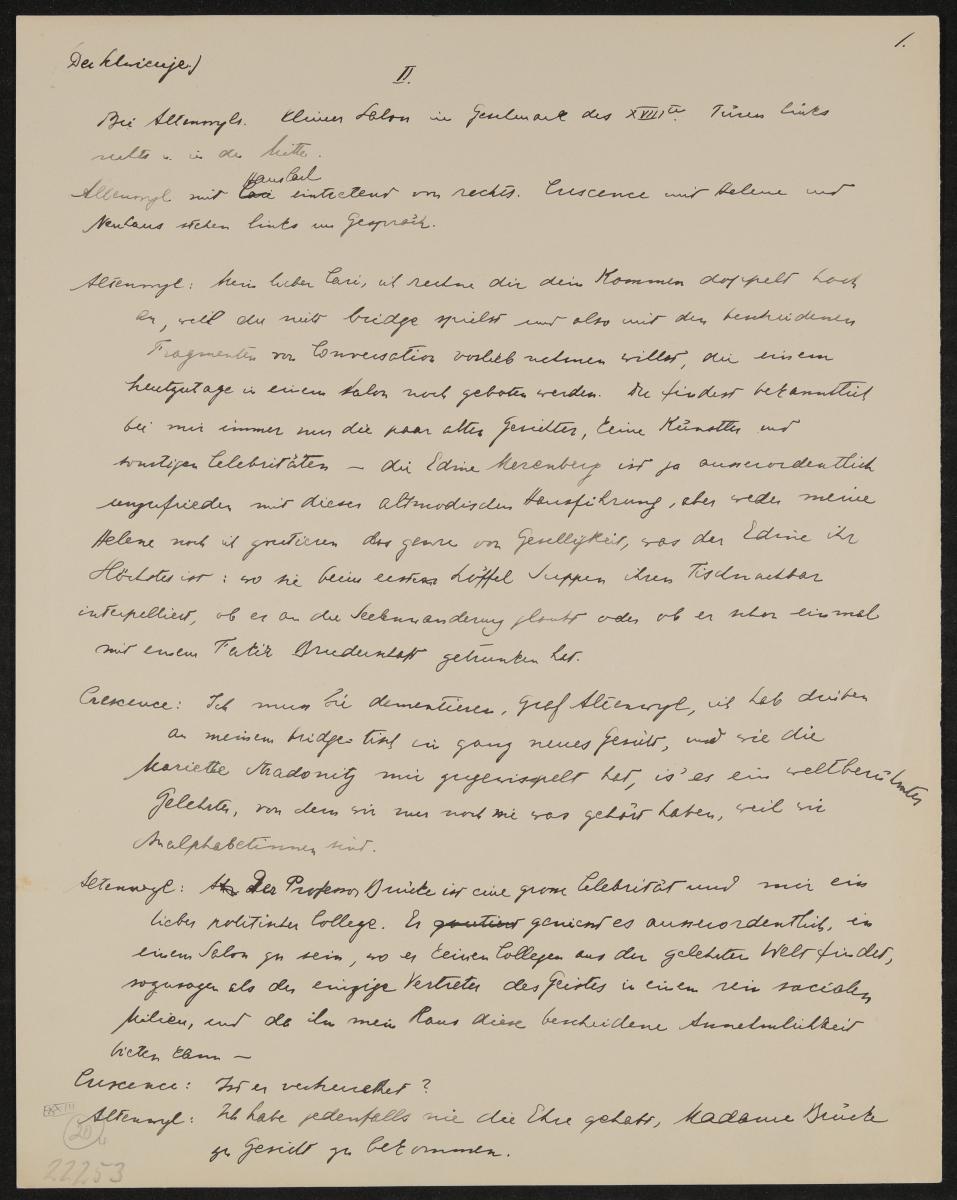 1.
(Der Schwierige.)
II.
Bei Altenwyls. Kleiner Salon im Geschmack des XVIIIten. Türen links
rechts u. in der Mitte.
Hans Carl
Altenwyl mit Cari eintretend von rechts. Crescence mit Helene und
Neuhaus stehen links im Gespräch.
Altenwyl: Mein lieber Cari, ich rechne dir dein Kommen doppelt hoch
an, weil du nicht bridge spielst und also mit den bescheidenen
Fragmenten von Conversation vorlieb nehmen willst, die einem
heutzutage in einem Salon noch geboten werden. Du findest bekanntlich
bei mir immer nur die paar alten Gesichter, keine Künstler und
sonstigen Celebritäten — die Edine Merenberg ist ja ausserordentlich
unzufrieden mit dieser altmodischen Hausführung, aber weder meine
Helene noch ich goutieren das genre von Geselligkeit, was der Edine ihr
Höchstes ist: wo sie beim ersten Löffel Suppen ihren Tischnachbar
interpelliert, ob er an die Seelenwanderung glaubt oder ob er schon einmal
mit einem Fakir Bruderschaft getrunken hat.
Crescence: Ich muss Sie dementieren, Graf Altenwyl, ich hab drüben
an meinem bridge-tisch ein ganz neues Gesicht, und wie die
Mariette Stradonitz mir zugewispelt hat, is' es ein weltberühmter
Gelehrter, von dem wir nur noch nie was gehört haben, weil wir
Analphabetinnen sind.
Altenwyl: Der Professor Brücke ist eine grosse Celebrität und mir ein
lieber politischer College. Er goutiert geniesst es ausserordentlich, in
einem Salon zu sein, wo er keinen Collegen aus der gelehrten Welt findet,
sozusagen als der einzige Vertreter des Geistes in einem rein socialen
Milieu, und da ihm mein Haus diese bescheidene Annehmlichkeit
bieten kann —
Crescence: Ist er verheirathet?
Altenwyl: Ich habe jedenfalls nie die Ehre gehabt, Madame Brücke
zu Gesicht zu bekommen.
XXIII
20
22253